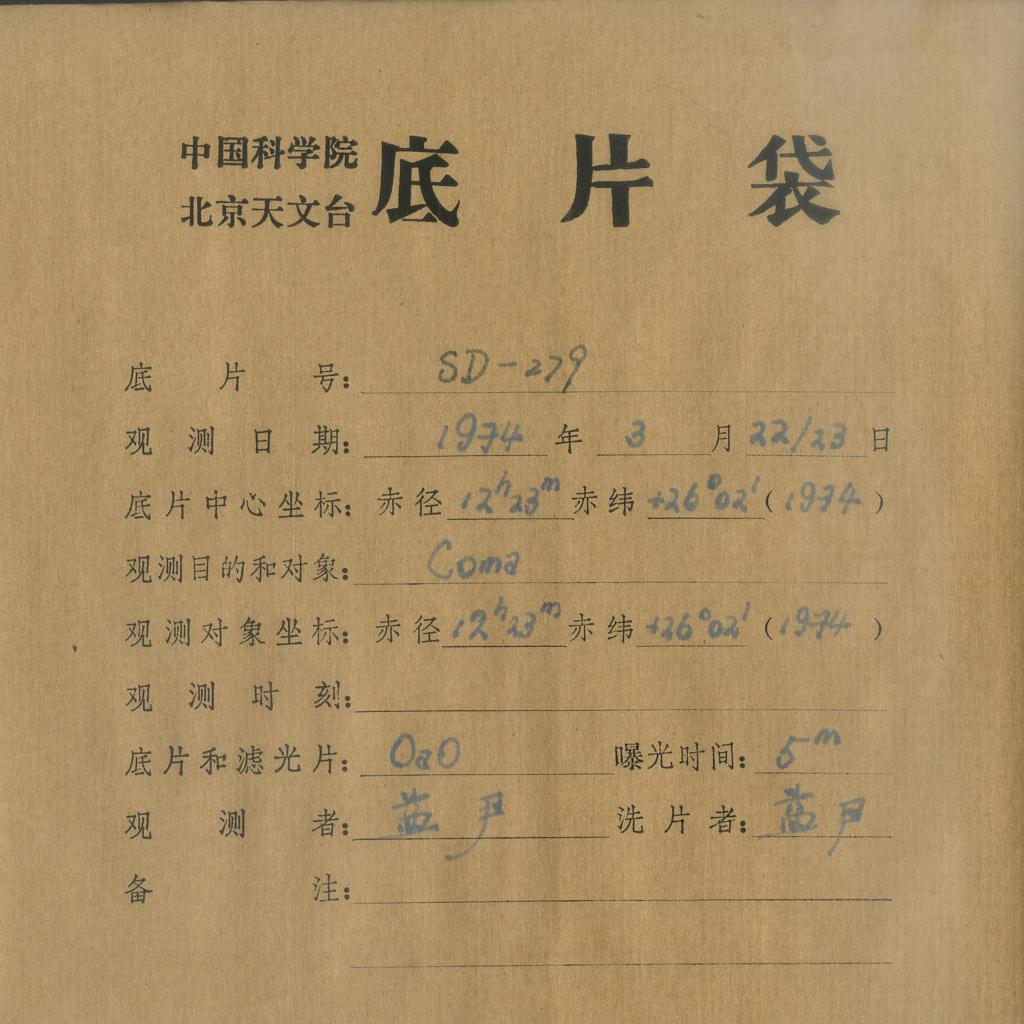 中国科学院
北京天文台
底片袋
底片号: SD-279
观测日期: 1974年3月22/23日
底片中心坐标: 赤径12ʰ23ᵐ赤纬+26°02′(1974)
观测目的和对象: Coma
观测对象坐标: 赤径12ʰ23ᵐ赤纬+26°02′(1974)
观测时刻:
底片和滤光片: OaO 曝光时间: 5ᵐ
观测者: 尹 洗片者: 尹
备注: